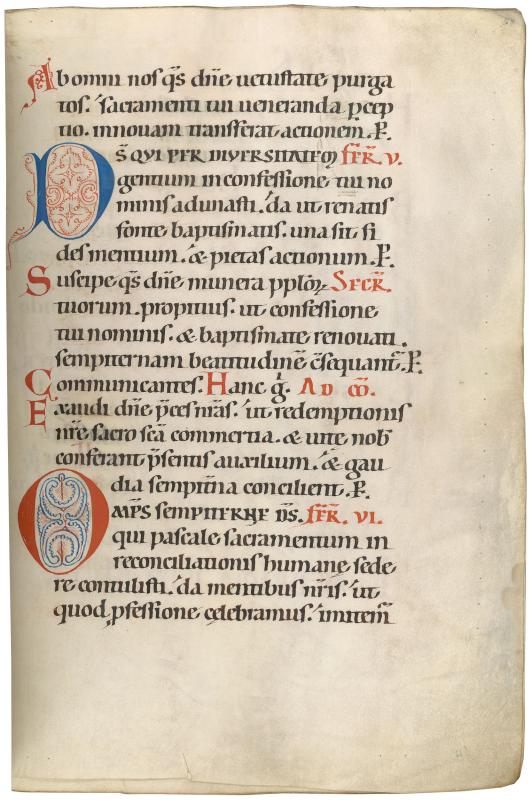 Ab omni nos q̄s dn̄e uetustate purga
tos. sacramenti tui ueneranda p̱cep
tio. in nouam transferat actionem. P̄.
Ds̄ QUI PER DIVERSITATEM FER̄. V.
gentium in confessione tui no
minis adunasti. da ut renatis
fonte baptismatis. una sit fi
des mentium. & pietas actionum. P̄.
Suscipe q̄s dn̄e munera pplōꝝ SECR̄.
tuorum. propitius. ut confessione
tui nominis. & baptismate renouati.
sempiternam beatitudinē c̄sequant̄. P̄.
Communicantes. Hanc g̊. AD CŌ.
Exaudi dn̄e p̄ces nr̄as. ut redemptionis
nr̄e sacro scā commertia. & uite nob̄
conferant p̄sentis auxilium. & gau
dia sempit̄na concilient. P̄.
OMP̄S SEMPITERNE DS̄. FER̄. VI.
qui pascale sacramentum in
reconciliationis humane fede
re contulisti. da mentibus nr̄is. ut
quod ꝓfessione celebramus. imitem̄